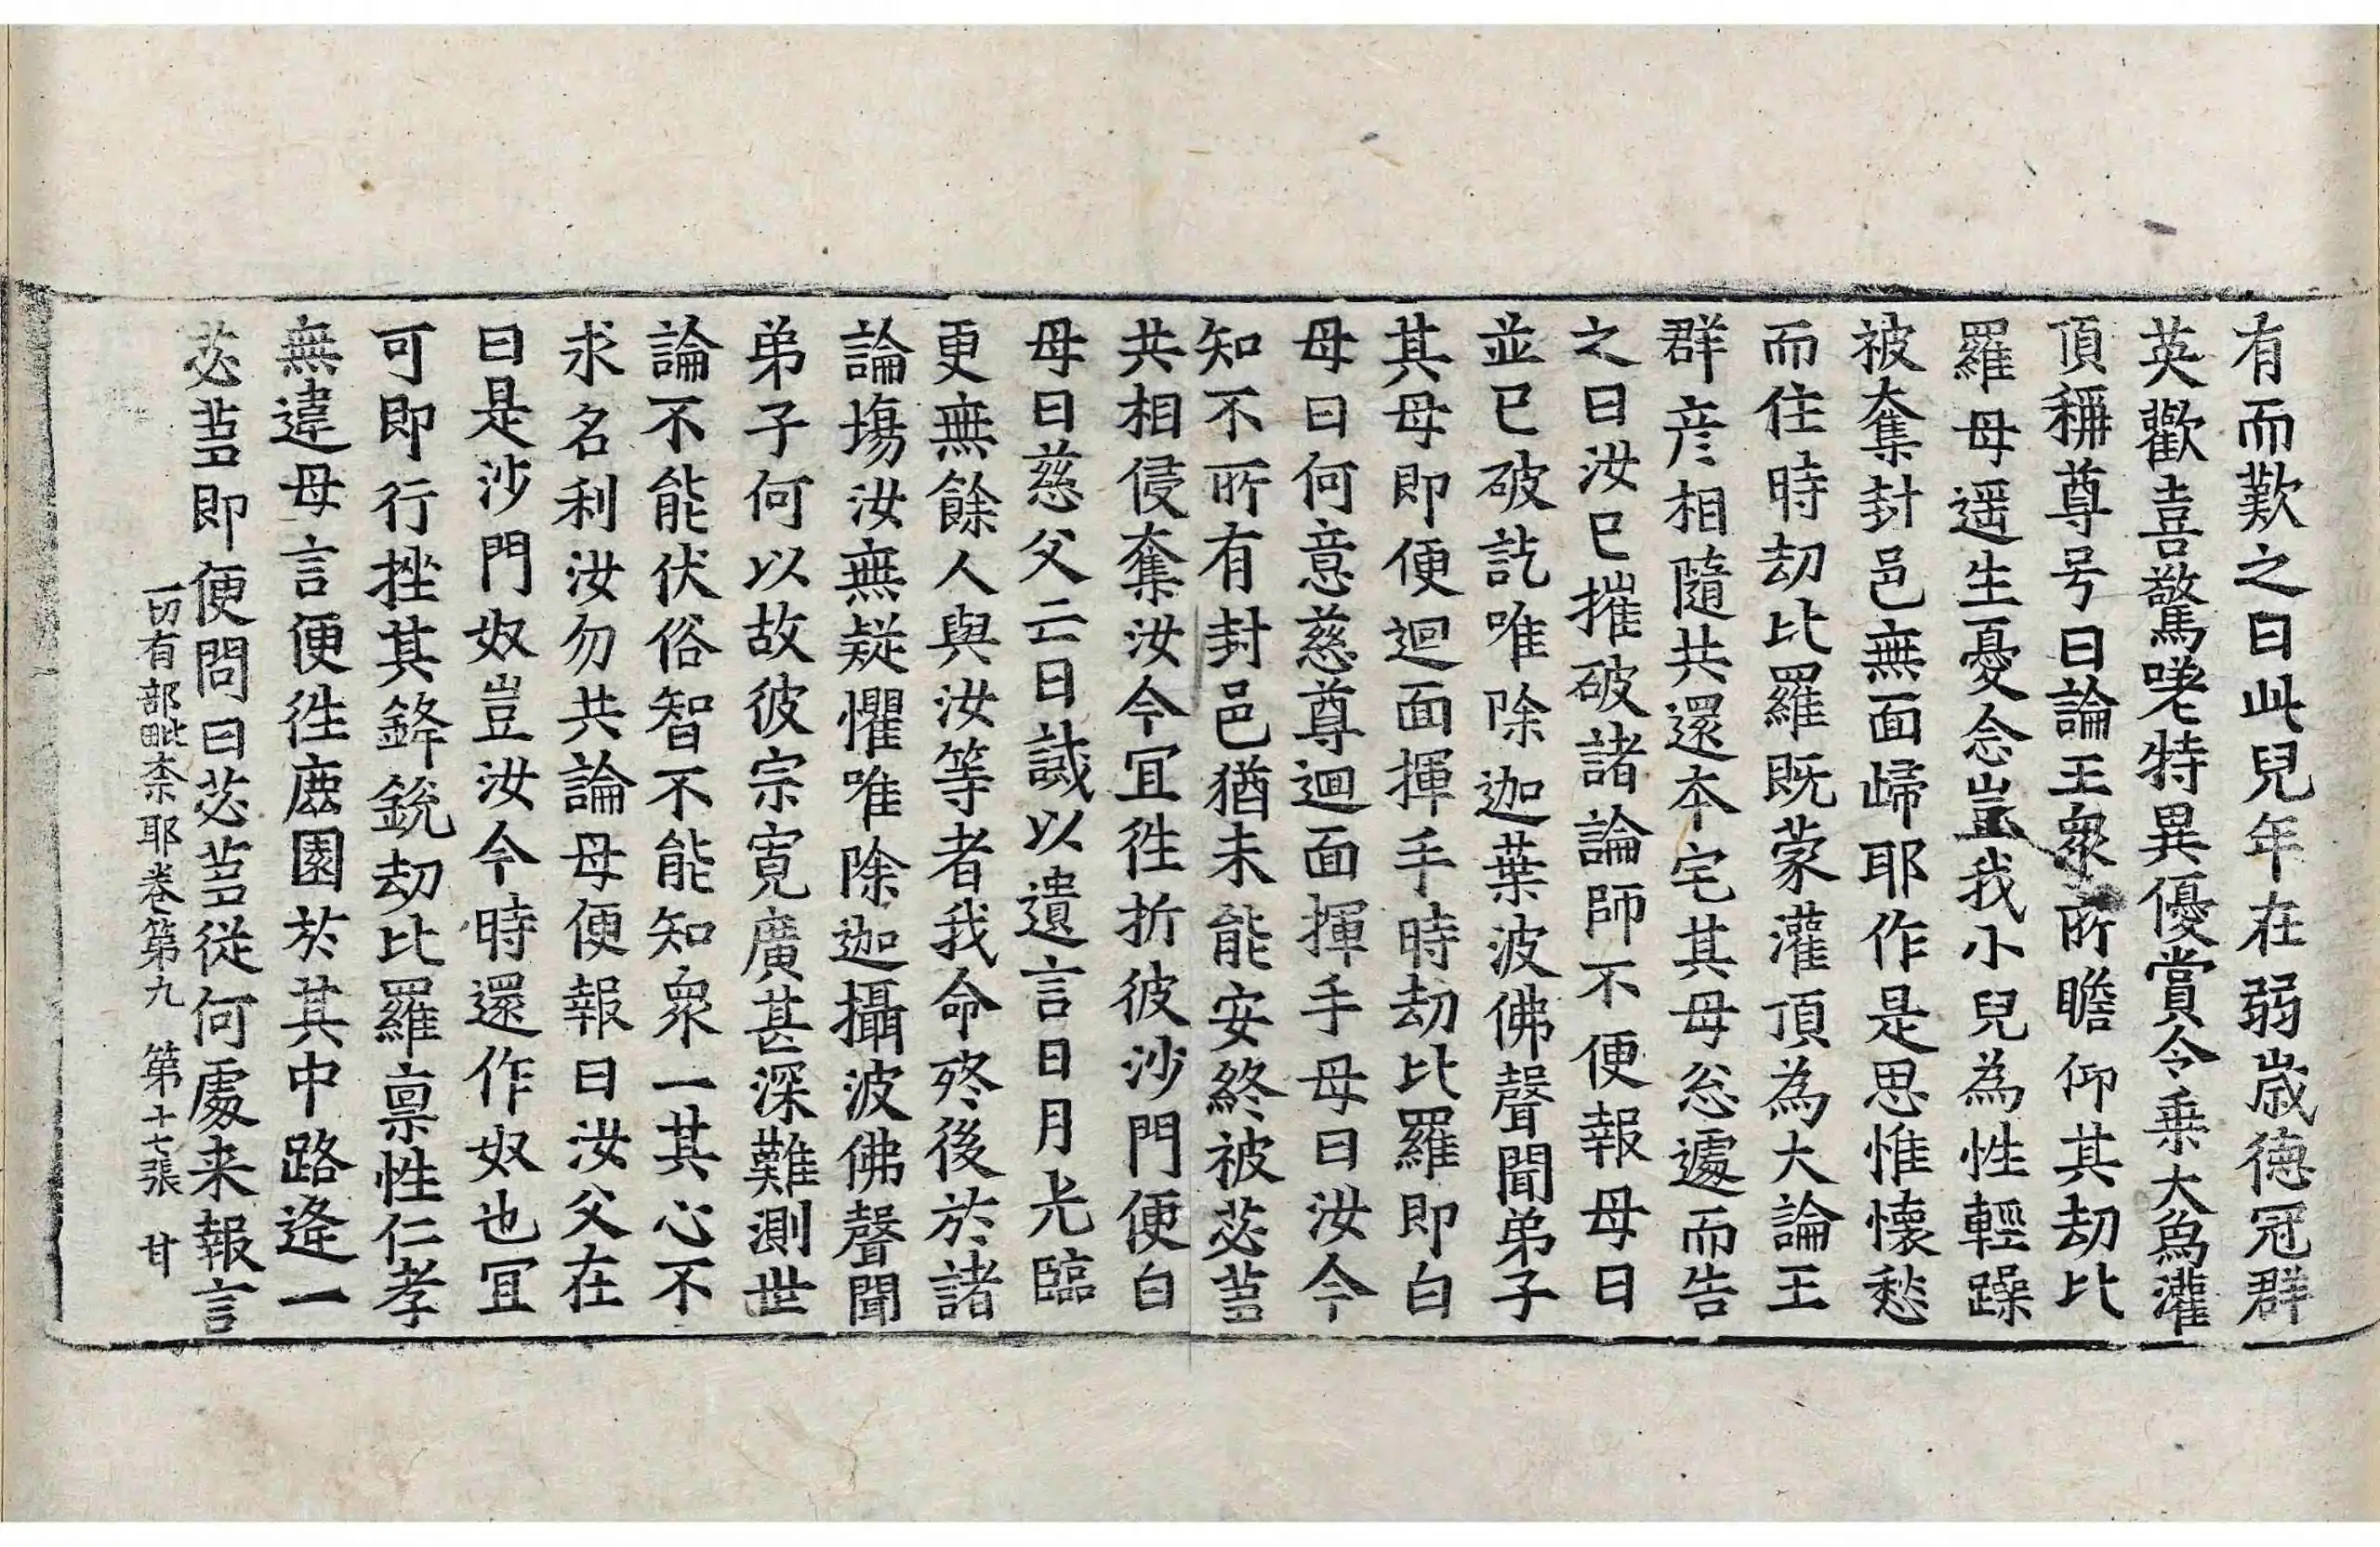 有而歎之曰此兒年在弱歳德冠群
英歡喜驚嗟特異優賞令乗大烏灌
頂稱尊号曰論王衆所瞻仰其劫比
羅母遥生憂念豈我小兒為性輕躁
被奪封邑無面歸耶作是思惟懐愁
而住時劫比羅既蒙灌頂為大論王
群彦相隨共還夲宅其母忩遽而告
之曰汝已摧破諸論師不便報母曰
並已破訖唯除迦葉波佛聲聞弟子
其母即便迴面揮手時劫比羅即白
母曰何意慈尊迴面揮手母曰汝今
知不所有封邑猶未能安終被苾蒭
共相侵奪汝今冝徃折彼沙門便白
母曰慈父亡日誡以遺言日月光臨
更無餘人與汝等者我命終後於諸
論塲汝無疑懼唯除迦攝波佛聲聞
弟子何以故彼宗寛廣甚深難測世
論不能伏俗智不能知衆一其心不
求名利汝勿共論母便報曰汝父在
曰是沙門奴豈汝今時還作奴也冝
可即行挫其鋒銳劫比羅禀性仁孝
無違母言便徃鹿園於其中路逢一
苾蒭即便問曰苾蒭從何處来報言
一切有部毗柰耶卷第九 第十七張 甘